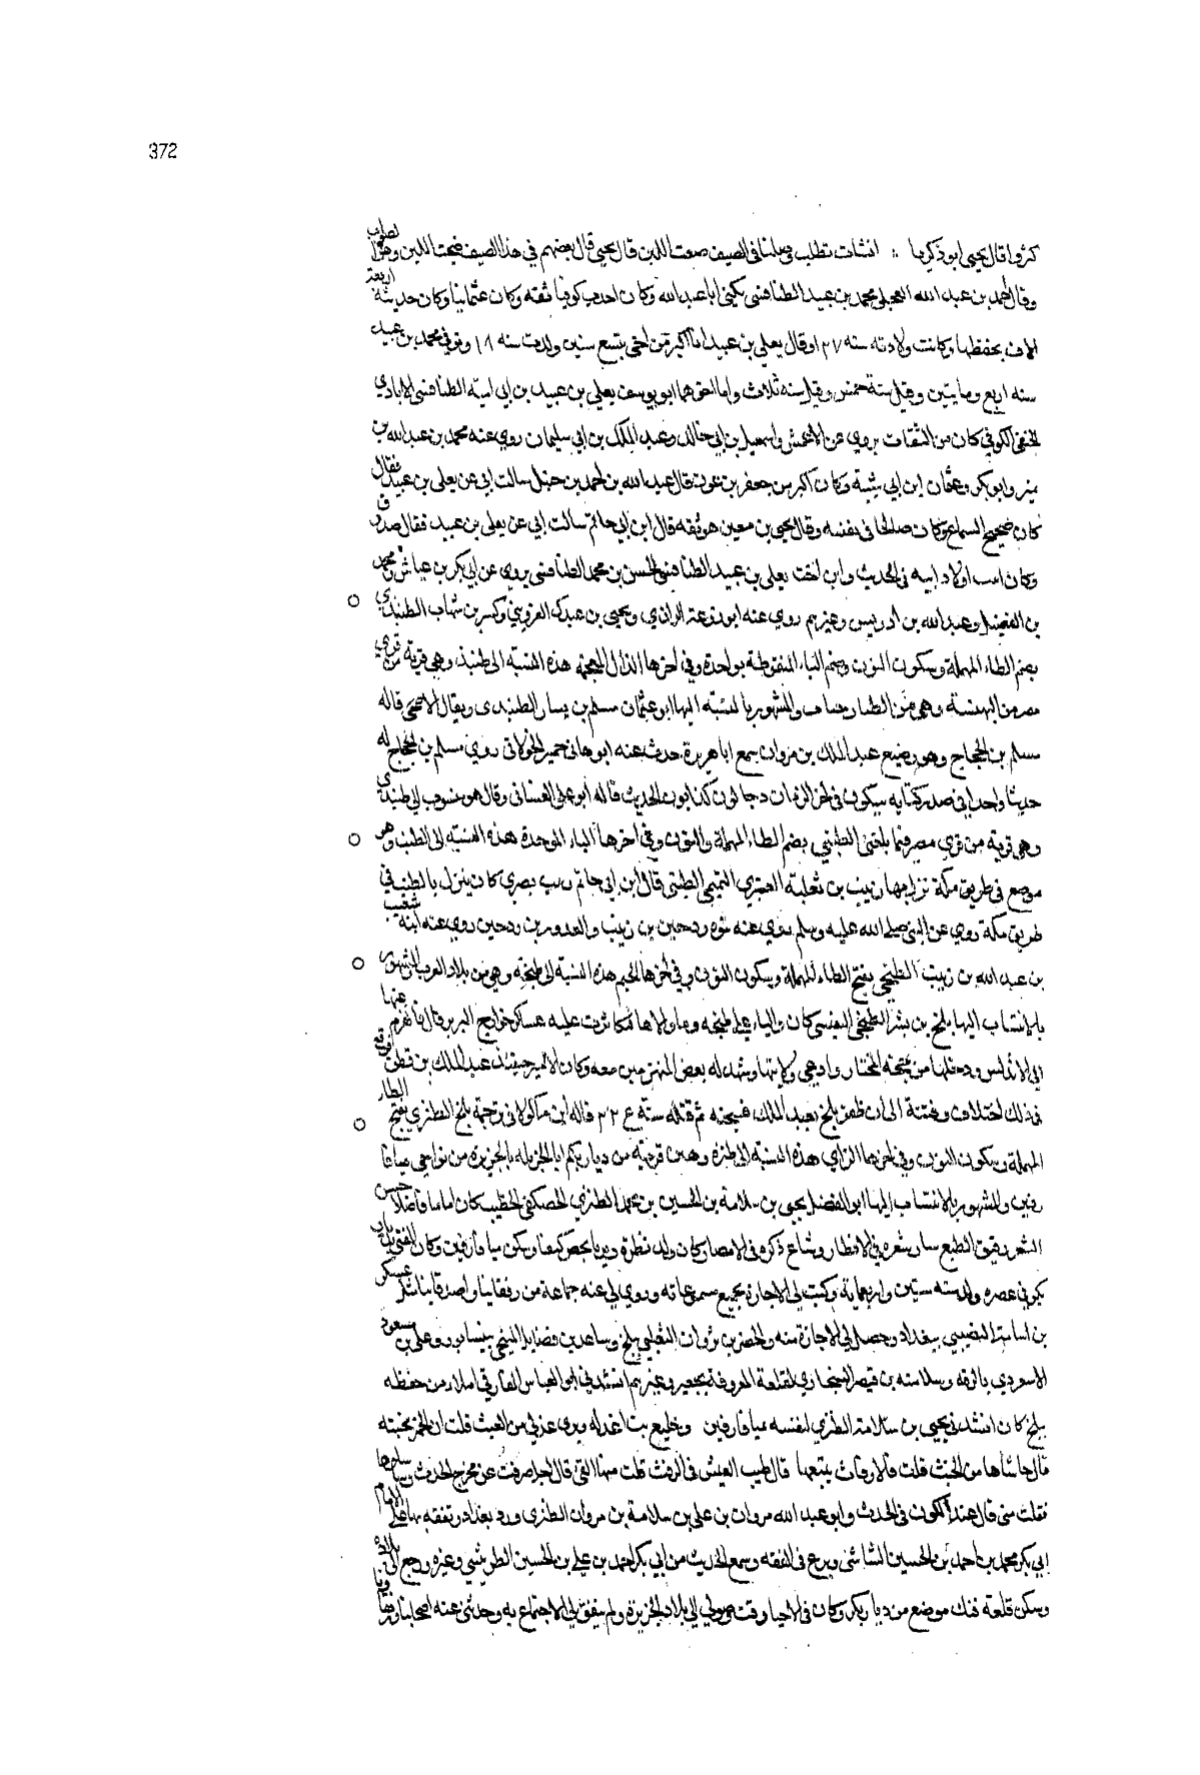 372
كرّوا قال يحيى ابو زكريا : انشات تطلب وصلنا في الصيف ضيعت اللبن قال يحيى قال بعضهم في هذا الصيف ضيحت اللبن وهو الصواب
وقال احمد بن عبد الله العجلي محمد بن عبيد الطنافسي يكنى ابا عبد الله وكان احدب كوفيا ثقه وكان عثمانيا وكان حديثه اربعة
الاف يحفظها وكانت ولادته سنه ١٢٧ وقال يعلي بن عبيد انا اكبر من اخي بتسع سنين ولدت سنه ١١٨ وتوفي محمد بن عبيد
سنه اربع ومايتين وقيل سنة خمس وقيل سنه ثلاث واما اخوهما ابو يوسف يعلي بن عبيد بن ابي اميه الطنافسي الايادي
الحنفي الكوفي كان من الثقات يروي عن الاعمش واسمعيل بن ابي خالد وعبد الملك بن ابي سليمان روي عنه محمد بن عبد الله بن
نمير وابو بكر وعثمان ابن ابي شيبة وكان اكبر من جعفر بن عون قال عبد الله بن احمد بن حنبل سالت ابي عن يعلي بن عبيد فقال
كان صحيح السماع وكان صالحا في نفسه وقال يحيى بن معين هو ثقه قال ابن ابي حاتم سالت ابي عن يعلي بن عبيد فقال صدوق
وكان اثبت اولاد ابيه في الحديث وابن اخت يعلي بن عبيد الطنافسي الحسن بن محمد الطنافسي يروي عن ابي بكر بن عياش ومحمد
بن الفضيل وعبد الله بن ادريس وغيرهم روي عنه ابو زرعة الرازي ويحيى بن عبدك القزويني وكسير بن شهاب الطنبذي
بضم الطاء المهملة وسكون النون وضم الباء المنقوطة بواحدة وفي اخرها الذال المعجمه هذه النسبة الى طنبذ وهي قرية من قرى
مصر من البهنسة وهي من والمشهور بالنسبه اليها ابو عثمان مسلم بن يسار الطنبذى ويقال الاصبحي قاله
مسلم بن الحجاج وهو رضيع عبد الملك بن مروان سمع ابا هريرة حدث عنه ابو هاني حميد الخولاني روي مسلم بن الحجاج له
حديثا واحدا في صدر كتابه سيكون في اخر الزمان دجالون كذابون الحديث قاله ابو علي الغساني وقال هو منسوب الى طنبذي
وهي قرية من قري مصر فيما بلغني الطنبي بضم الطاء المهملة والنون وفي اخرها الباء الموحدة هذه النسبه الى الطنب وهو
موضع في طريق مكة نزلها زبيب بن ثعلبة العنبري التميمي الطنبي قال ابن ابي حاتم زبيب بصري كان ينزل بالطنب في
طريق مكة روي عن النبي صلى الله عليه وسلم روي عنه بنوه ردحين بن زبيب والعدور بن ردحين روي عنه ابنه شعيب
بن عبد الله بن زبيب الطنجي بفتح الطاء المهملة وسكون النون وفي اخرها الجيم هذه النسبة الى طنجة وهي من بلاد الغرب المشهور
بالانتساب اليها بلج بن بشر الطنجي القيسي كان واليا علي طنجه وما والاها فكاثرت عليه عساكر خوارج البربر فانهزم عنها
الي الاندلس ودخلها وادعي ولايتها وشهد له بعض المنهزمين معه وكان الامير حينئذ عبد الملك بن قطن فوقع
في ذلك اختلاف وفتنة الى ان ظفر بلج بعبد الملك فسجنه ثم قتله سنة ١٢٤ قاله ابن ماكولا في ترجمة بلج الطنزي بفتح الطاء
المهملة وسكون النون وفي اخرها الزاي هذه النسبة الى طنزة وهي قرية من ديار بكر الجزيرة من نواحي ميافا
رقين والمشهور بالانتساب اليها ابو الفضل يحيى بن سلامة بن الحسين بن محمد الطنزي الحصكفي الخطيب كان اماما فاضلا حسن
الشعر رقيق الطبع سار شعره في الاقطار وشاع ذكره في الامصار وكان ولد بطنزة وربي بحصن كيفا وسكن ميافارقين وكان المفتي
بكر في عصره ولد سنه ستين واربعماية وكتب الي الاجازة بجميع مسموعاته وروي لي عنه جماعة من رفقاينا واصدقاينا عسكر
بن اسامة النصيبي ببغداد وحصل لي الاجازة منه والخضر بن ثروان الثعلبي ببلخ وساعد بن فضايل المنبجي بنيسابور وعلي بن مسعود
الاسعردي بالرقه وسلامه بن قيصر السنجاري بقلعة المعروفة بجعبر وغيرهم انشدني ابو العباس الفارقي املاء من حفظه
ببلخ كان انشدني يحيى بن سلامة الطنزي لنفسه بميافارقين وخليع بت اعذله ويرى عذلي من العبث قلت ان الخمر مخبثه
قال حاشاها من الخبث قلت فالارفاث يتبعها قال طيب العيش في الرفث قلت منها القي قال اجل شرفت عن مخرج الحدث وساسلوها
فقلت متى قال عند الكون في الحدث وابو عبد الله مروان بن علي بن سلامة بن مروان الطنزى ورد بغداد وتفقه بها علي الامام
ابي بكر محمد بن احمد بن الحسين الشاشي وبرع في الفقه وسمع الحديث من ابي بكر احمد بن علي بن الحسين الطريثيثي وغيره ورجع الى بلاده
وسكن قلعة فنك موضع من ديار بكر وكان في الاحيا وقت وصولي الى بلاد الجزيرة ولم يتفق لي الاجتماع به وحدثني عنه اصحابنا